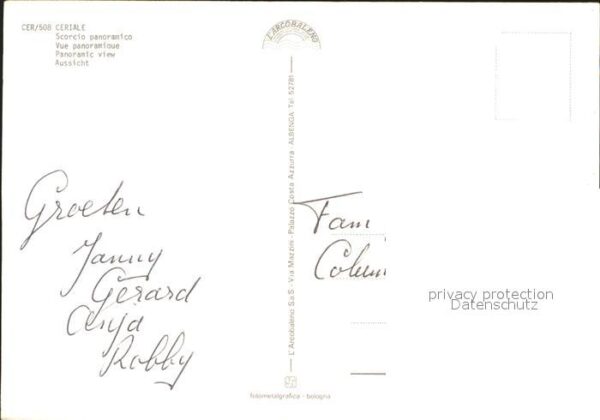 CER/508 CERIALE
Scorcio panoramico
Vue panoramique
Panoramic view
Aussicht
L'ARCOBALENO
L'Arcobaleno S.a.S. - Via Mazzini - Palazzo Costa Azzurra - ALBENGA Tel. 52781
fotometalgrafica - bologna
Groeten
Janny
Gerard
Anja
Robby
Fam
privacy protection
Datenschutz